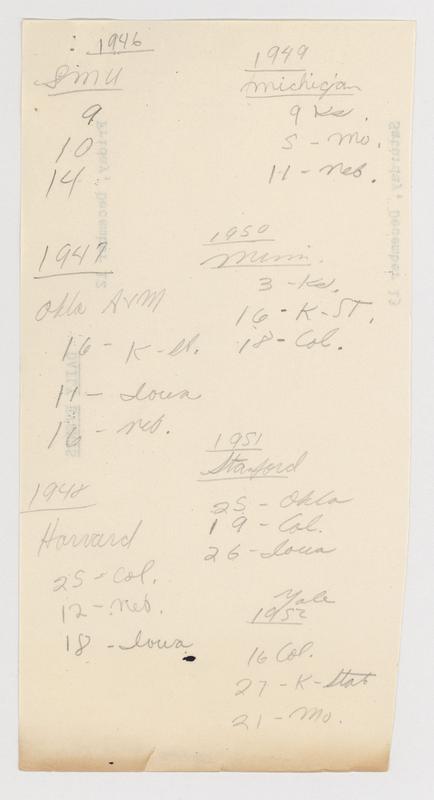 : 1946
SMU
9
10
14
1947
Okla A&M
16 - K-St.
11 - Iowa
16 - Neb.
1948
Harvard
25 - Col.
12 - Neb.
18 - Iowa
1949
Michigan
9 Ks.
5 - Mo.
11 - Neb.
1950
Minn.
3 - Ks.
16 - K-ST.
18 - Col.
1951
Stanford
25 - Okla
19 - Col.
26 - Iowa
Yale
1952
16 Col.
27 - K-State
21 - Mo.
Friday, December 12
Saturday, December 13